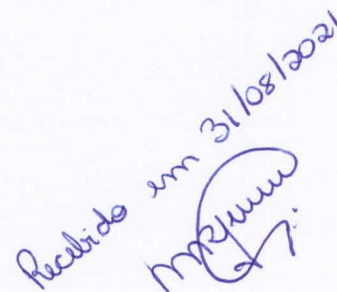 Recebido em 31/08/2021